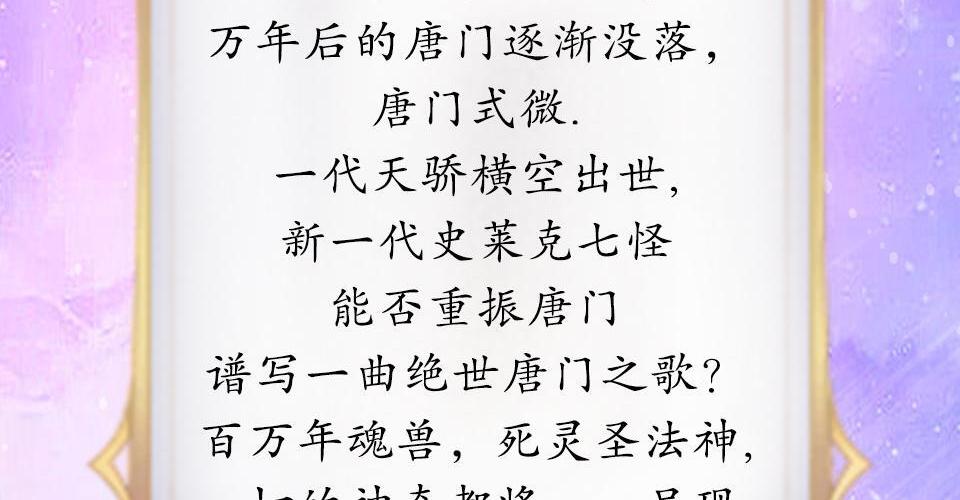 万年后的唐门逐渐没落，
唐门式微.
一代天骄横空出世,
新一代史莱克七怪
能否重振唐门
谱写一曲绝世唐门之歌？
百万年魂兽，死灵圣法神,